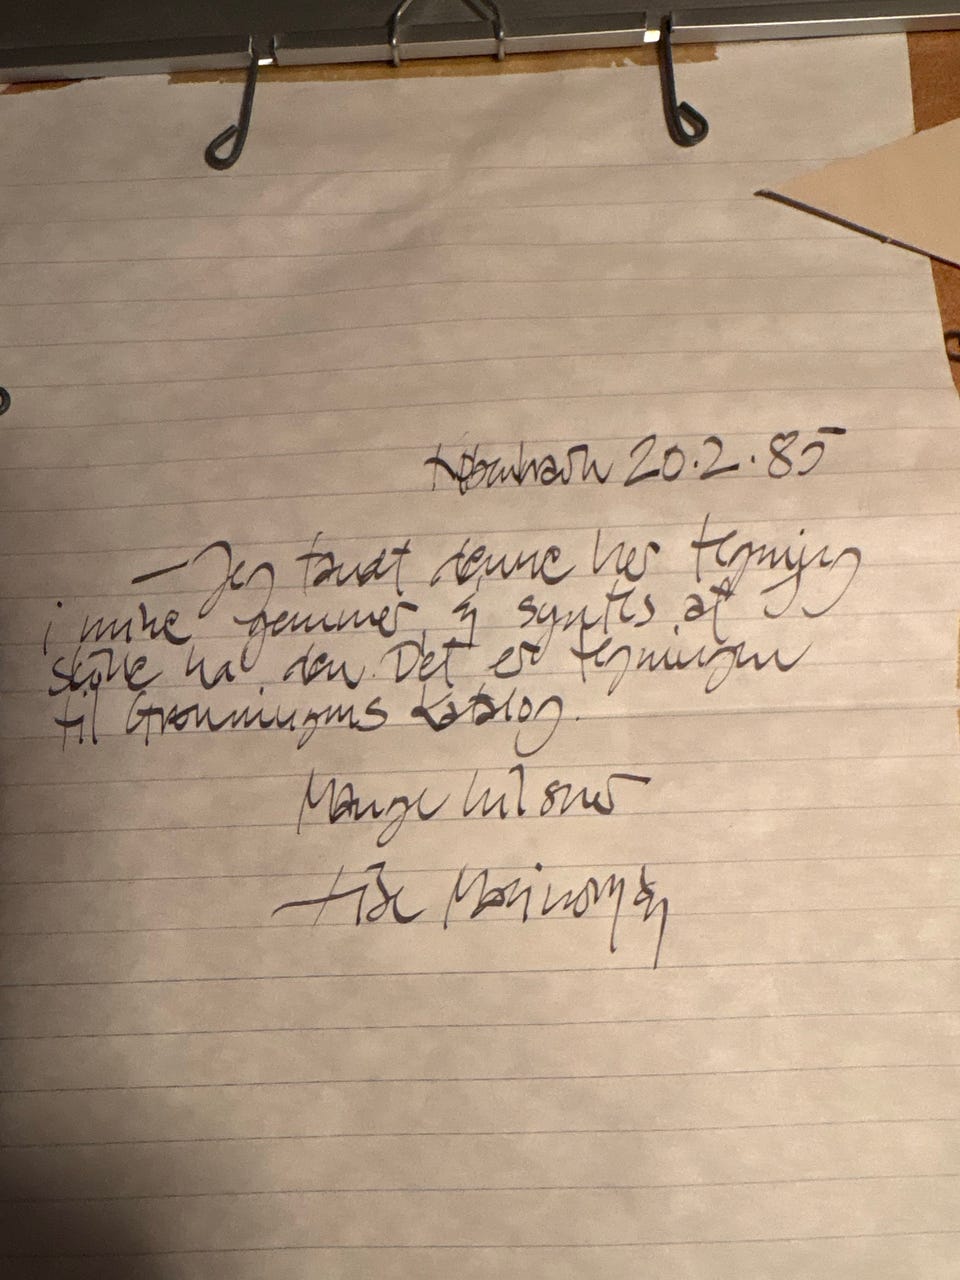 København 20.2.85
– Jeg fandt denne her tegning
i mine gemmer, & syntes at
skulle ha' den. Det er tegningen
til Grønningens katalog.
Mange hilsner